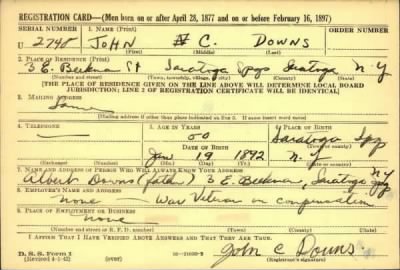 REGISTRATION CARD—(Men born on or after April 28, 1877 and on or before February 16, 1897)
SERIAL NUMBER 1. NAME (Print) ORDER NUMBER
U 2748 JOHN C. DOWNS
(First) (Middle) (Last)
2. PLACE OF RESIDENCE (Print)
3 E. Beekman St Saratoga Spgs Saratoga N.Y.
(Number and street) (Town, township, village, or city) (County) (State)
[THE PLACE OF RESIDENCE GIVEN ON THE LINE ABOVE WILL DETERMINE LOCAL BOARD
JURISDICTION; LINE 2 OF REGISTRATION CERTIFICATE WILL BE IDENTICAL]
3. MAILING ADDRESS
Same
[Mailing address if other than place indicated on line 2. If same insert word same]
4. TELEPHONE 5. AGE IN YEARS 6. PLACE OF BIRTH
50 Saratoga Spgs
DATE OF BIRTH (Town or county)
Jan 19 1892 N.Y.
(Exchange) (Number) (Mo.) (Day) (Yr.) (State or country)
7. NAME AND ADDRESS OF PERSON WHO WILL ALWAYS KNOW YOUR ADDRESS
Albert Downs (father) 3 E. Beekman, Saratoga Spgs N.Y.
8. EMPLOYER'S NAME AND ADDRESS
none War Veteran on compensation
9. PLACE OF EMPLOYMENT OR BUSINESS
none
(Number and street or R. F. D. number) (Town) (County) (State)
I AFFIRM THAT I HAVE VERIFIED ABOVE ANSWERS AND THAT THEY ARE TRUE.
D. S. S. Form 1 (Revised 4-1-42) (over) John C Downs
(Registrant's signature)